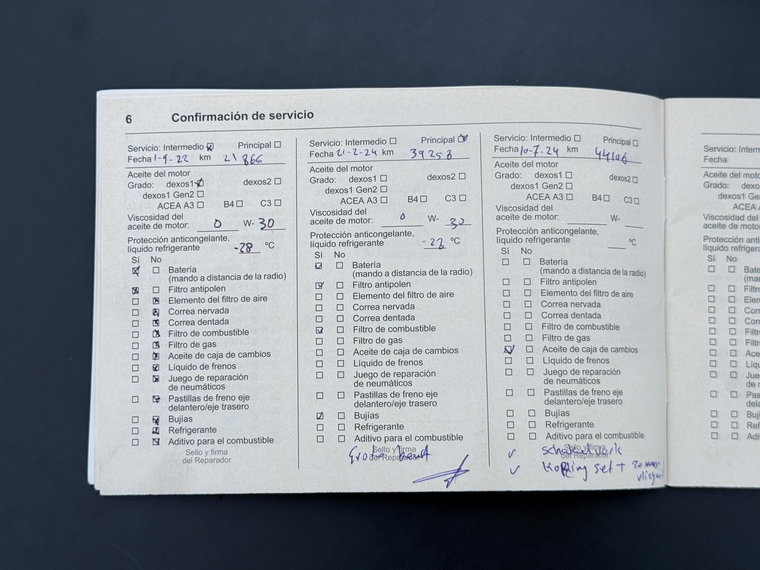 6 Confirmación de servicio
Servicio: Intermedio ☒ Principal ☐
Fecha 1-9-22 km 21866
Aceite del motor
Grado: dexos1 ☒ dexos2 ☐
dexos1 Gen2 ☐
ACEA A3 ☐ B4 ☐ C3 ☐
Viscosidad del
aceite de motor: 0 W- 30
Protección anticongelante,
líquido refrigerante -28 °C
Sí No
☒ ☐ Batería
(mando a distancia de la radio)
☒ ☐ Filtro antipolen
☐ ☒ Elemento del filtro de aire
☐ ☒ Correa nervada
☐ ☒ Correa dentada
☐ ☒ Filtro de combustible
☐ ☒ Filtro de gas
☐ ☒ Aceite de caja de cambios
☐ ☒ Líquido de frenos
☐ ☒ Juego de reparación
de neumáticos
☐ ☒ Pastillas de freno eje
delantero/eje trasero
☐ ☒ Bujías
☐ ☒ Refrigerante
☐ ☒ Aditivo para el combustible
Sello y firma
del Reparador
Servicio: Intermedio ☐ Principal ☑
Fecha 21-2-24 km 39253
Aceite del motor
Grado: dexos1 ☐ dexos2 ☐
dexos1 Gen2 ☐
ACEA A3 ☐ B4 ☐ C3 ☐
Viscosidad del
aceite de motor: 0 W- 30
Protección anticongelante,
líquido refrigerante -22 °C
Sí No
☑ ☐ Batería
(mando a distancia de la radio)
☑ ☐ Filtro antipolen
☐ ☐ Elemento del filtro de aire
☐ ☐ Correa nervada
☐ ☐ Correa dentada
☑ ☐ Filtro de combustible
☐ ☐ Filtro de gas
☐ ☐ Aceite de caja de cambios
☐ ☐ Líquido de frenos
☐ ☐ Juego de reparación
de neumáticos
☐ ☐ Pastillas de freno eje
delantero/eje trasero
☑ ☐ Bujías
☐ ☐ Refrigerante
☐ ☐ Aditivo para el combustible
Sello y firma
del Reparador
Grote beurt
Servicio: Intermedio ☐ Principal ☐
Fecha 10-7-24 km
Aceite del motor
Grado: dexos1 ☐ dexos2 ☐
dexos1 Gen2 ☐
ACEA A3 ☐ B4 ☐ C3 ☐
Viscosidad del
aceite de motor: W-
Protección anticongelante,
líquido refrigerante °C
Sí No
☐ ☐ Batería
(mando a distancia de la radio)
☐ ☐ Filtro antipolen
☐ ☐ Elemento del filtro de aire
☐ ☐ Correa nervada
☐ ☐ Correa dentada
☐ ☐ Filtro de combustible
☐ ☐ Filtro de gas
☑ ☐ Aceite de caja de cambios
☐ ☐ Líquido de frenos
☐ ☐ Juego de reparación
de neumáticos
☐ ☐ Pastillas de freno eje
delantero/eje trasero
☐ ☐ Bujías
☐ ☐ Refrigerante
☐ ☐ Aditivo para el combustible
Sello y firma
del Reparador
✓
✓ Koppling set +
Servicio: Interm
Fecha
Aceite del moto
Grado: dexo
dexos1 Ge
ACEA
Viscosidad del
aceite de motor
Protección anti
líquido refrigera
Sí No
☐ ☐ Bate
(man
☐ ☐ Filtro
☐ ☐ Elem
☐ ☐ Corr
☐ ☐ Corr
☐ ☐ Filtr
☐ ☐ Filtr
☐ ☐ Ace
☐ ☐ Líqu
☐ ☐ Jue
de n
☐ ☐ Pas
dela
☐ ☐ Buj
☐ ☐ Ref
☐ ☐ Adi